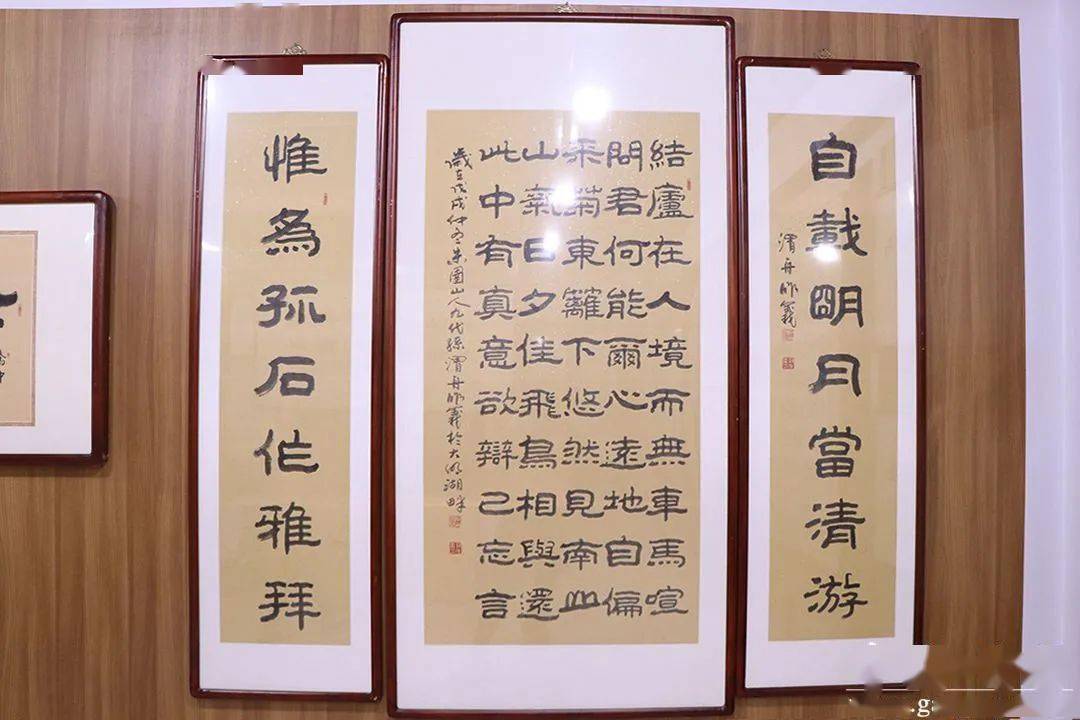 自載明月當清游
渭舟
結廬在人境而無車馬喧
問君何能爾心遠地自偏
采菊東籬下悠然見南山
山氣日夕佳飛鳥相與還
此中有真意欲辯已忘言
歲在戊戌仲冬朱圉山人九代孫渭舟於大明湖畔
惟為孤石作雅拜